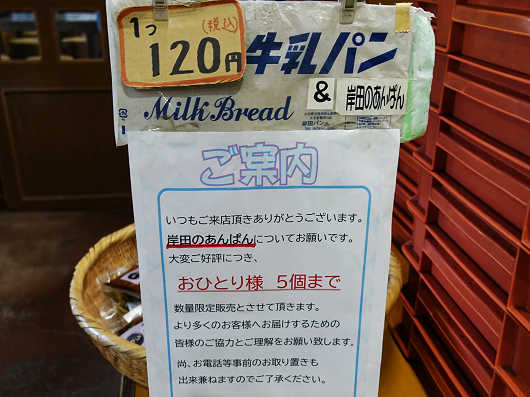 1つ
(税込)
120円
牛乳パン
&
岸田のあんぱん
Milk Bread
ご案内
いつもご来店頂きありがとうございます。
岸田のあんぱんについてお願いです。
大変ご好評につき、
おひとり様 5個まで
数量限定販売とさせて頂きます。
より多くのお客様へお届けするための
皆様のご協力とご理解をお願い致します。
尚、お電話等事前のお取り置きも
出来兼ねますのでご了承ください。